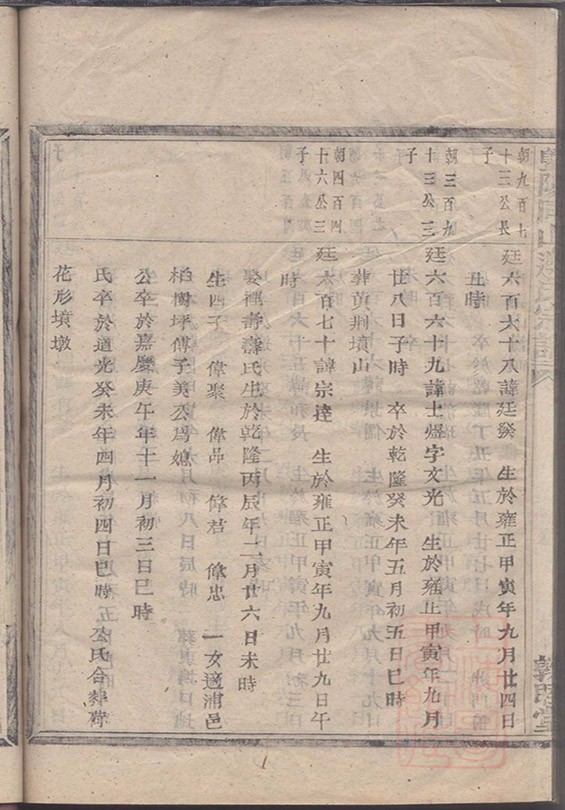 朝九百七
十三公長
子
廷六百六十八諱廷癸 生於雍正甲寅年九月廿四日
丑時
朝三百九
十三公三
子
廷六百六十九諱士煜字文光 生於雍正甲寅年九月
廿八日子時 卒於乾隆癸未年五月初五日巳時
葬黄荆墳山
朝四百四
十六公三
子
廷六百七十諱宗達 生於雍正甲寅年九月廿九日午
時
娶 壽 氏生於乾隆丙辰年二月廿六日未時
生四子 偉聚 偉昂 偉君 偉忠 一女適浦邑
柏樹坪傅子美公爲媳
公卒於嘉慶庚午年十一月初三日巳時
氏卒於道光癸未年四月初四日巳時 公氏合葬
花形墳墩
敦